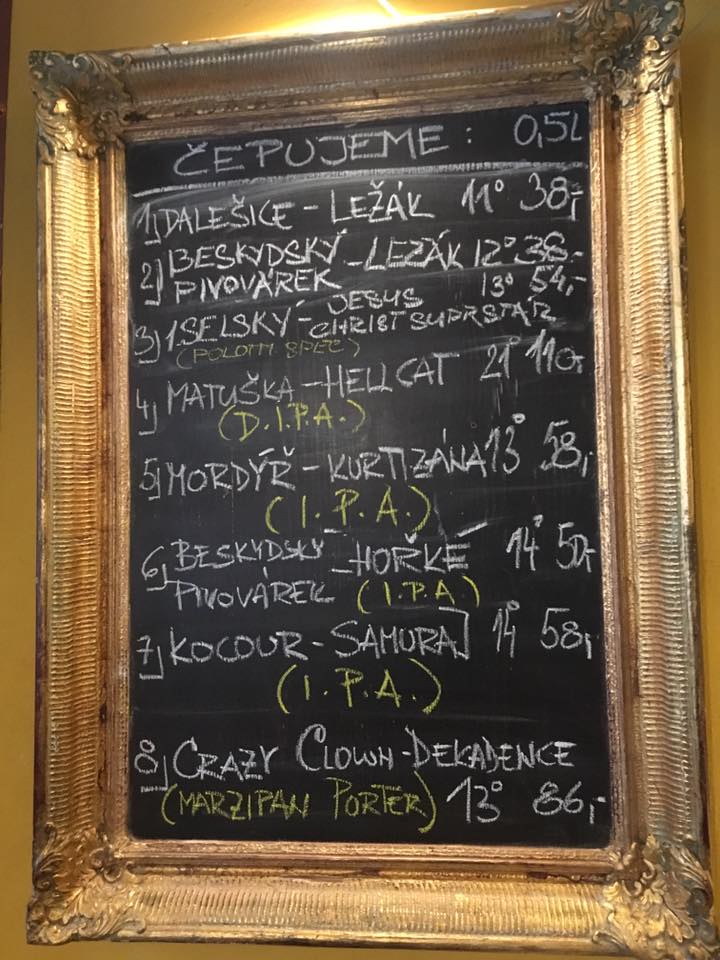 ČEPUJEME: 0,5L
1) DALEŠICE - LEŽÁK 11° 38,-
2) BESKYDSKÝ - LEŽÁK 12° 38,-
PIVOVÁREK
3) 1.SELSKÝ - JESUS 13° 54,-
CHRIST SUPRSTAR
4) MATUŠKA - HELLCAT 21° 110,-
(D.I.P.A.)
5) MORDÝŘ - KURTIZÁNA 13° 58,-
(I.P.A.)
6) BESKYDSKÝ - HOŘKÉ 14° 50,-
PIVOVÁREK (I.P.A.)
7) KOCOUR - SAMURAJ 14° 58,-
(I.P.A.)
8) CRAZY CLOWN - DEKADENCE
(MARZIPAN PORTER) 13° 86,-